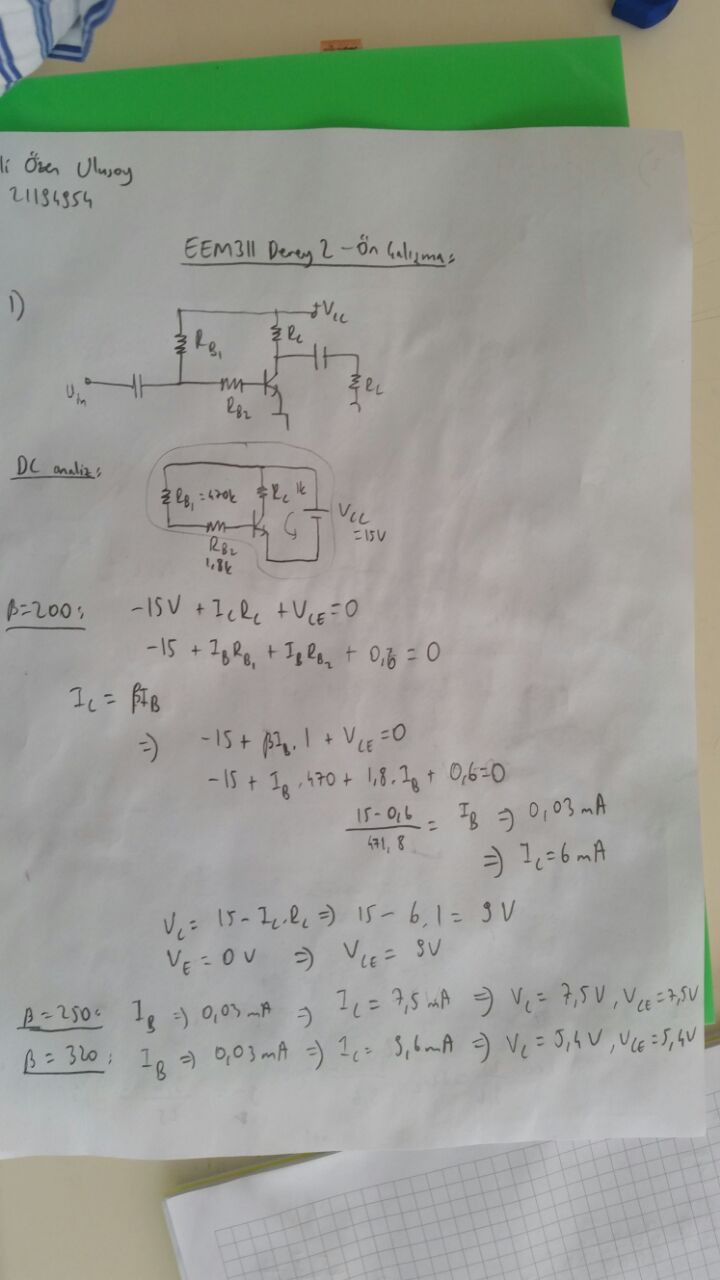 li Özer Ulusoy
21194954
EEM311 Deney 2 - Ön Çalışma:
1)
+VCC
RB1
RC
Uin
RB2
RL
DC analiz:
RB1 = 470k
RC 1k
VCC
= 15V
RB2
1,8k
β=200: -15V + ICRC + VCE = 0
-15 + IBRB1 + IBRB2 + 0,6 = 0
IC = βIB
⇒) -15 + βIB. 1 + VCE = 0
-15 + IB .470 + 1,8. IB + 0,6=0
15-0,6 / 471,8 = IB ⇒ 0,03 mA
⇒ IC = 6 mA
VC = 15 - IC.RC ⇒ 15 - 6.1 = 9 V
VE = 0 V ⇒ VCE = 9V
β=250: IB ⇒ 0,03 mA ⇒ IC = 7,5 mA ⇒ VC = 7,5 V, VCE = 7,5V
β = 320: IB ⇒ 0,03 mA ⇒ IC = 9,6 mA ⇒ VC = 5,4 V, VCE = 5,4V